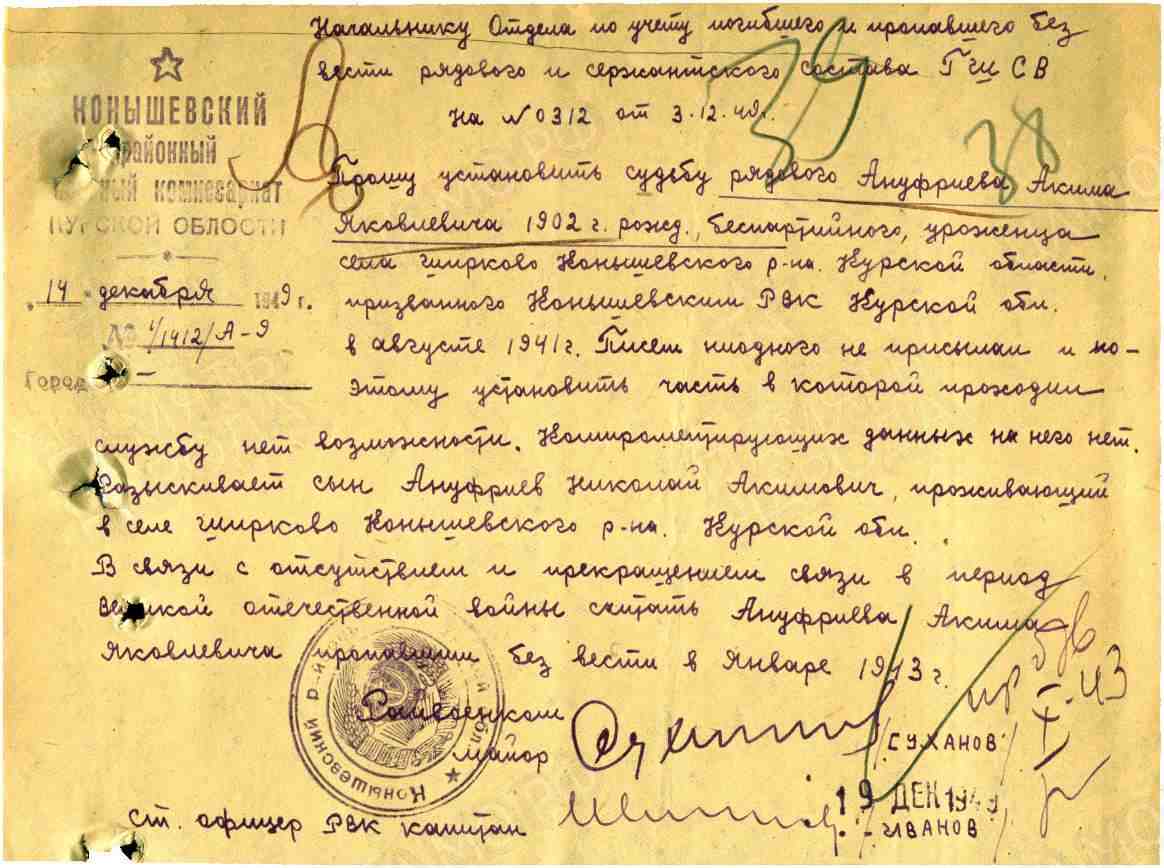 Начальнику Отдела по учету погибшего и пропавшего без
вести рядового и сержантского состава ГШСВ
На №0312 от 3.12.49г.
39
38
КОНЫШЕВСКИЙ
районный
ный комиссариат
КУРСКОЙ ОБЛОСТИ
"14" декабря 1949 г.
№ 1/1412/А-9
Город
Прошу установить судьбу рядового Ануфриева Акима
Яковлевича 1902 г. рожд., беспартийного, уроженца
села Ширково Конышевского р-на. Курской области,
призванного Конышевским РВК Курской обл.
в августе 1941г. Писем ниодного не присылал и по-
этому установить часть в которой проходил
службу нет возможности. Компрометирующих данных на него нет.
Разыскивает сын Ануфриев Николай Акимович, проживающий
в селе Ширково Конышевского р-на. Курской обл.
В связи с отсутствием и прекращением связи в период
великой отечественной войны считать Ануфриева Акима
Яковлевича пропавшим без вести в Январе 1943г.
пр I-43
Райвоенком
майор /СУХАНОВ/
Конышевский
19 ДЕК 1949
ст. офицер РВК капитан /-ИВАНОВ